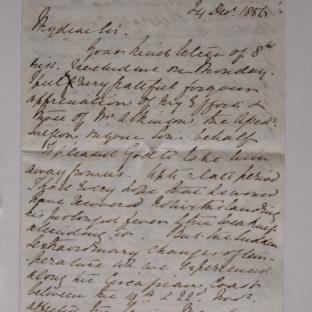 24 Decr. 1886
My dear Sir.
Your kind letter of 8th
inst. reached me on Monday.
full & very grateful for your
appreciation of my efforts &
those of Mr. Atkinson the
surgeon on your Son's behalf
pleased God to take him
away from us. Up to a late period
I had every hope that he would
have recovered
his prolonged fever & the
attending it. But the sudden
extraordinary changes of tem-
perature as we experienced
along the European Coast
between the & 22d Novr.
affected the